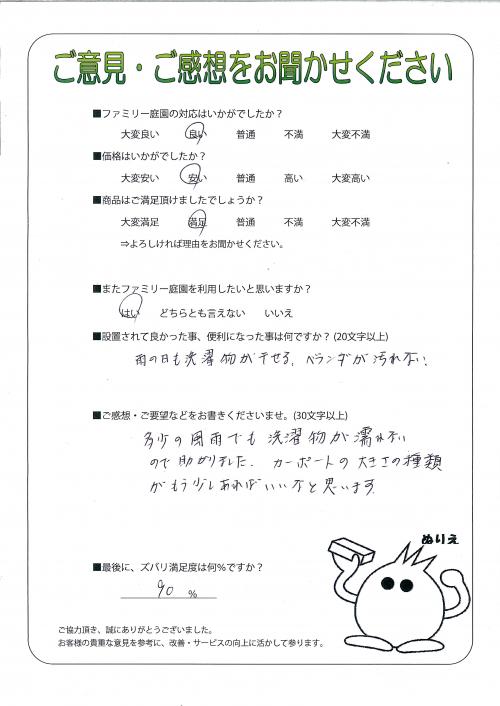 ご意見・ご感想をお聞かせください
■ファミリー庭園の対応はいかがでしたか?
大変良い 良い 普通 不満 大変不満
■価格はいかがでしたか?
大変安い 安い 普通 高い 大変高い
■商品はご満足頂けましたでしょうか?
大変満足 満足 普通 不満 大変不満
⇒よろしければ理由をお聞かせください。
■またファミリー庭園を利用したいと思いますか?
はい どちらとも言えない いいえ
■設置されて良かった事、便利になった事は何ですか? (20文字以上)
雨の日も洗濯物が干せる、ベランダが汚れない、
■ご感想・ご要望などをお書きくださいませ。(30文字以上)
多少の風雨でも洗濯物が濡れない
ので助かりました。カーポートの大きさの種類
がもう少しあればいいなと思います。
ぬりえ
■最後に、ズバリ満足度は何%ですか?
90 %
ご協力頂き、誠にありがとうございました。
お客様の貴重な意見を参考に、改善・サービスの向上に活かして参ります。